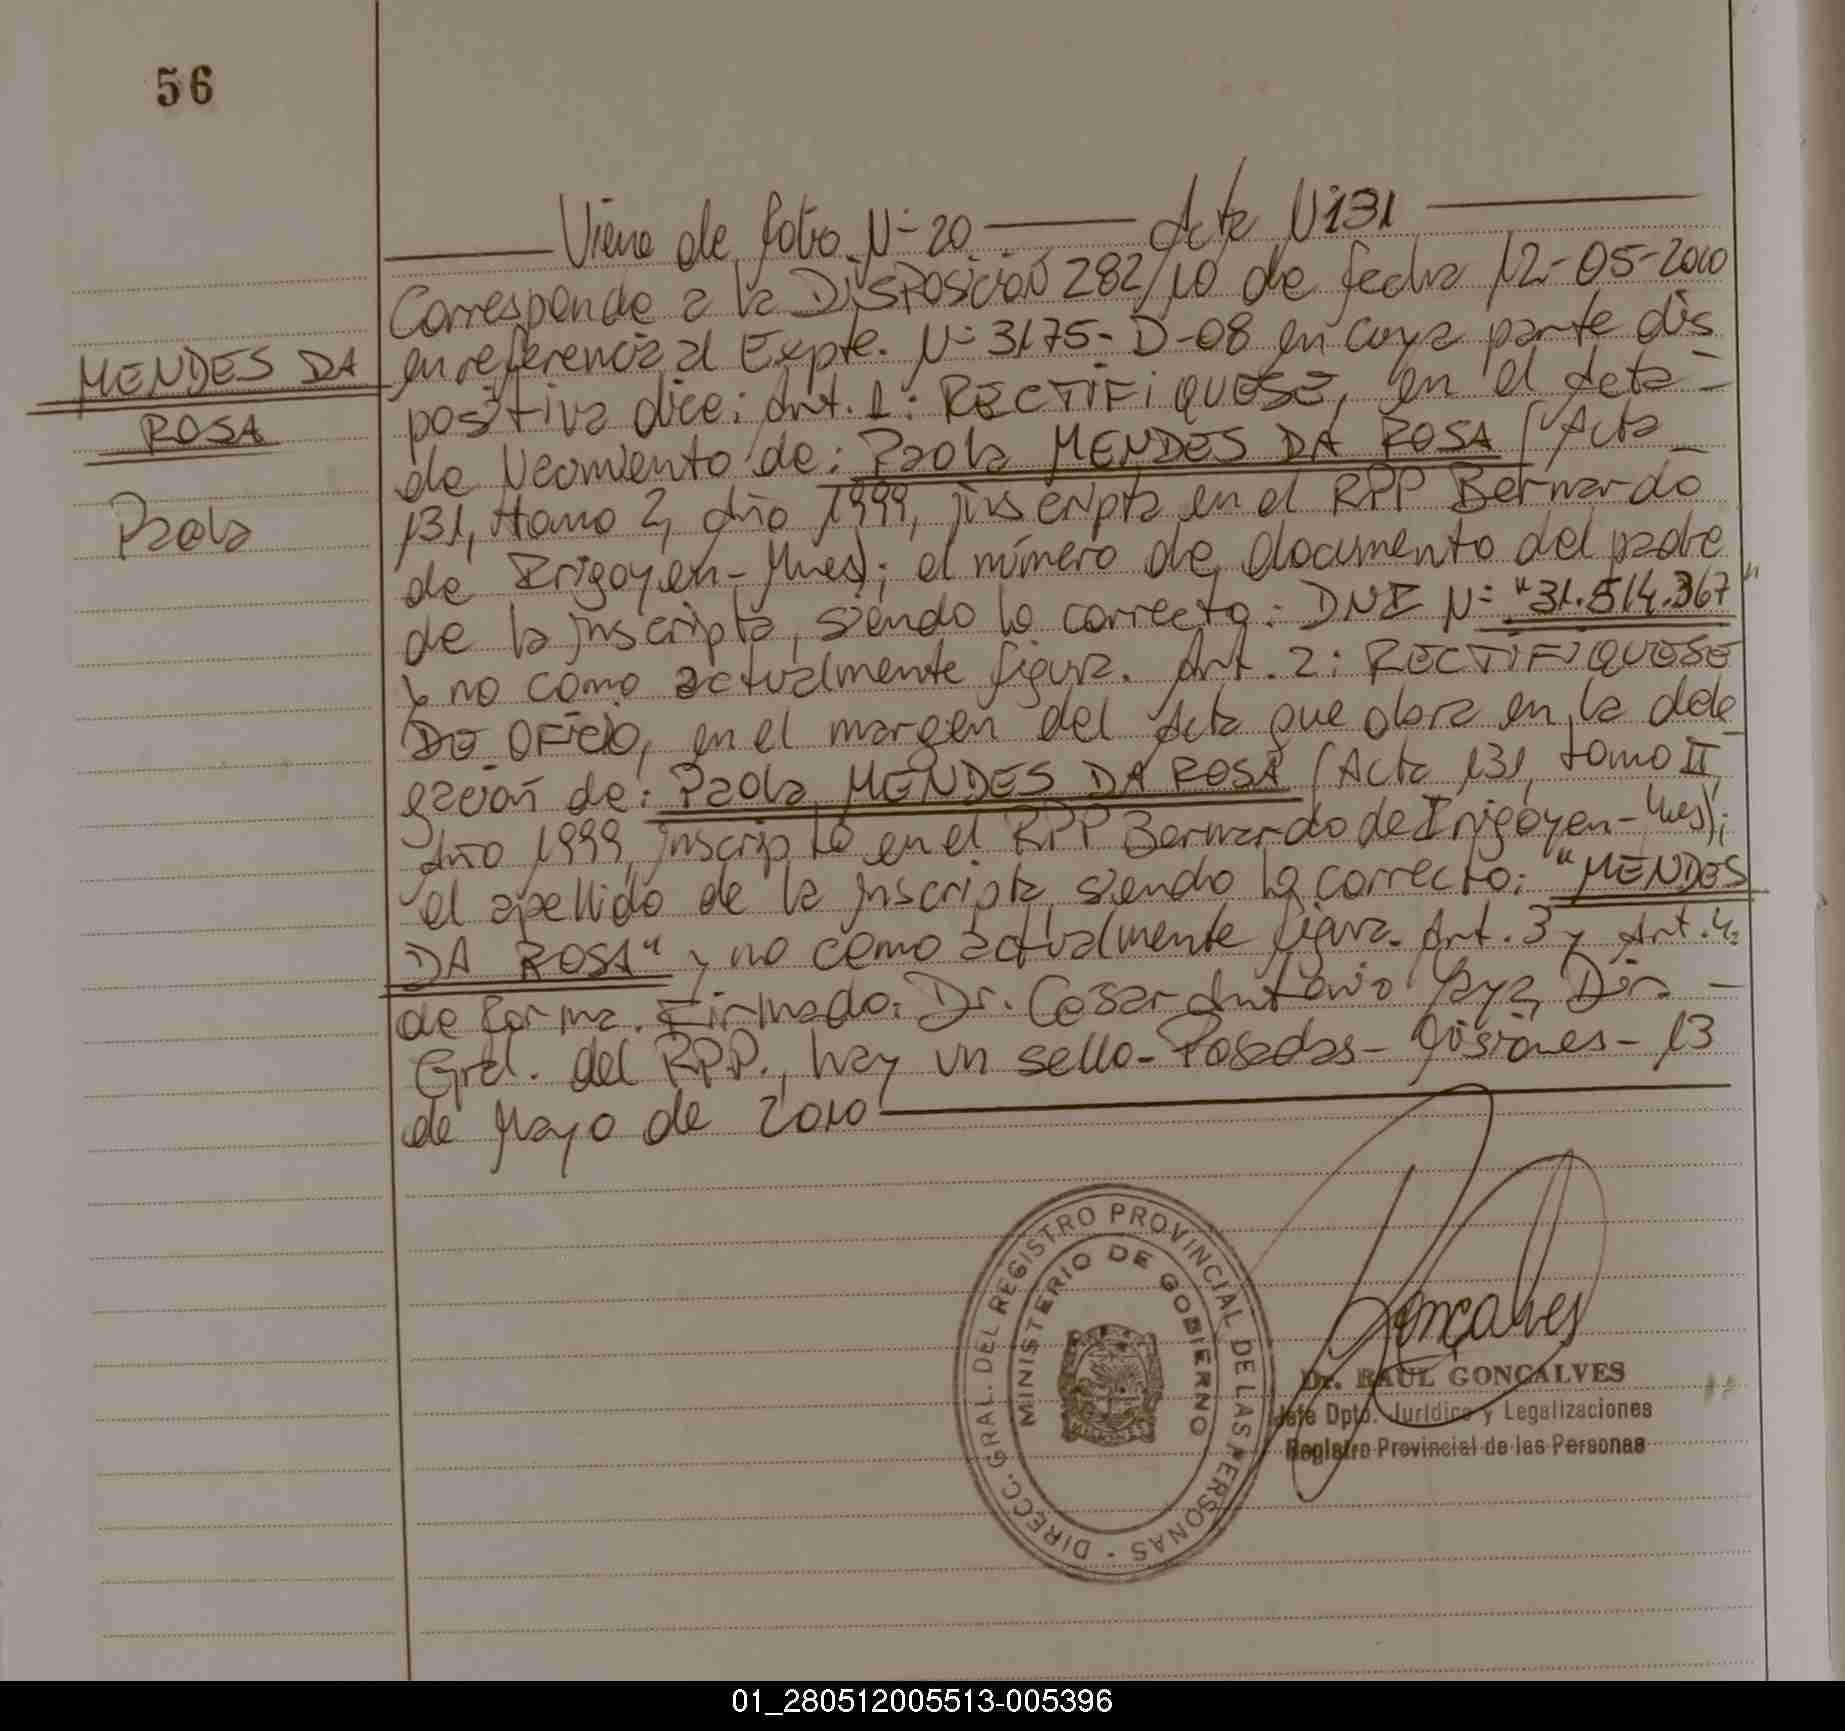 56
Viene de folio N° 20 — Acta N° 131
Corresponde a la DISPOSICIÓN 282/10 de fecha 12-05-2010
en referencia al Expte. N° 3175-D-08 en cuya parte dis
positiva dice: Art. 1: RECTIFIQUESE, en el Acta
de Nacimiento de: Paola MENDES DA ROSA (Acta
131, tomo 2, Año 1999, inscripta en el RPP Bernardo
de Irigoyen-Mnes); el número de documento del padre
de la inscripta, siendo lo correcto: DNI N° "31.514.367"
y no como actualmente figura. Art. 2: RECTIFIQUESE
DE OFICIO, en el margen del Acta que obra en la dele
gación de: Paola MENDES DA ROSA (Acta 131, tomo II,
Año 1999, inscripta en el RPP Bernardo de Irigoyen-Mnes);
el apellido de la inscripta siendo lo correcto: "MENDES
DA ROSA" y no como actualmente figura. Art. 3 y Art. 4:
de forma. Firmado: Dr. Cesar Antonio Dir.
Gral. del RPP., hay un sello- Posadas- Misiones- 13
de Mayo de 2010
MENDES DA
ROSA
Paola
DIRECC. GRAL. DEL REGISTRO PROVINCIAL DE LAS PERSONAS
MINISTERIO DE GOBIERNO
Gonçalves
Dr. RAUL GONÇALVES
Jefe Dpto. Jurídico y Legalizaciones
Registro Provincial de las Personas
01_280512005513-005396